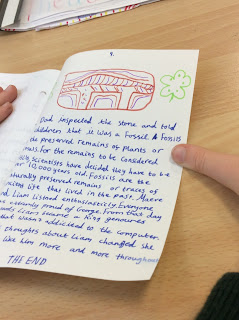 9.
Dad inspected the stone and told
children that it was a Fossil. A Fossils
the preserved remains of plants or
mals. For the remains to be considered
Fossils scientists have decided they have to be
10,000 years old. Fossils are the
naturally preserved remains or traces of
living life that lived in the past. Maeve
and Liam listened enthusiastically. Everyone
was extremely proud of George. From that day
Liam became a
that wasn't addicted to the computer.
thoughts about Liam changed she
like him more and more throughout
THE END